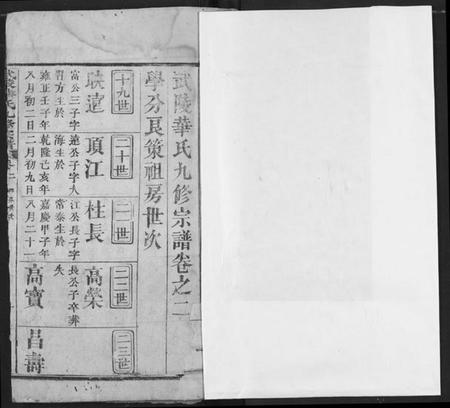 武陵華氏九修宗譜卷之二
學分艮策祖房世次
十九世
二十世
二一世
二二世
二三世
映遠
富公三子字
習方生於
雍正壬子年
八月初二日
項江
遠公子字大
海生於
乾隆己亥年
二月初九日
柱長
江公長子字
常泰生於
嘉慶甲子年
八月二十一
高榮
長公子卒葬
失
高寶
昌壽